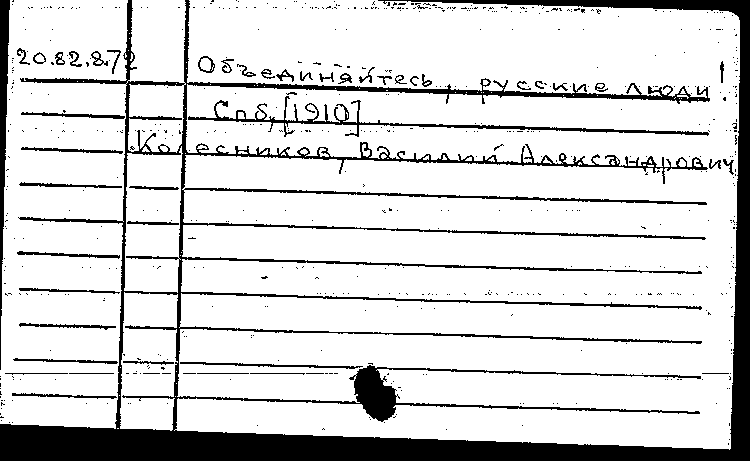 20.82.8.72 Объединяйтесь, русские люди!
Спб, [1910].
Колесников, Василий Александрович